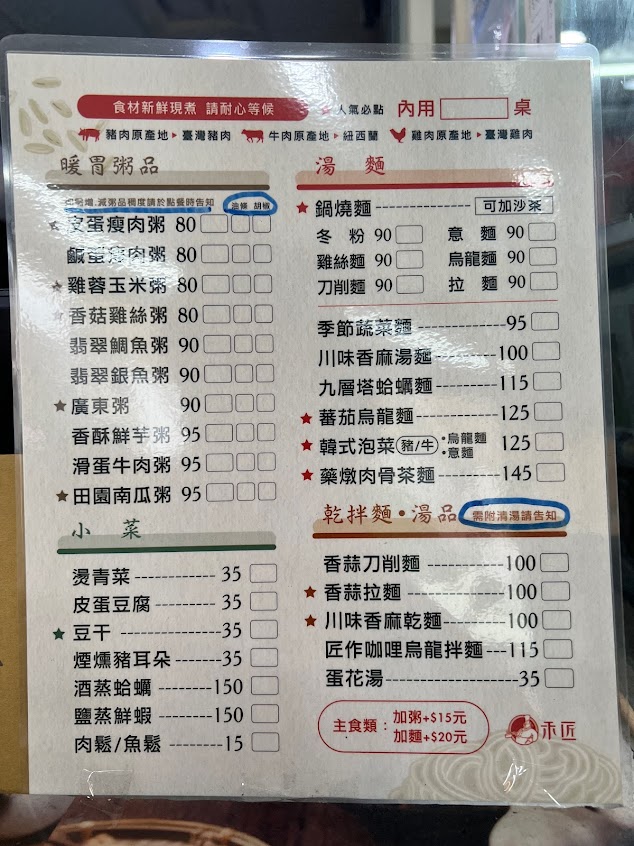 食材新鮮現煮 請耐心等候
★ 人氣必點
內用 桌
豬肉原產地▸臺灣豬肉
牛肉原產地▸紐西蘭
雞肉原產地▸臺灣雞肉
暖胃粥品
減粥品稠度請於點餐時告知
油條 胡椒
皮蛋瘦肉粥 80
鹹蛋瘦肉粥 80
★ 雞蓉玉米粥 80
★ 香菇雞絲粥 80
翡翠鯛魚粥 90
翡翠銀魚粥 90
★ 廣東粥 90
香酥鮮芋粥 95
滑蛋牛肉粥 95
★ 田園南瓜粥 95
小菜
燙青菜 35
皮蛋豆腐 35
★ 豆干 35
煙燻豬耳朵 35
酒蒸蛤蠣 150
鹽蒸鮮蝦 150
肉鬆/魚鬆 15
湯麵
★ 鍋燒麵 可加沙茶
冬粉 90 意麵 90
雞絲麵 90 烏龍麵 90
刀削麵 90 拉麵 90
季節蔬菜麵 95
川味香麻湯麵 100
九層塔蛤蠣麵 115
★ 蕃茄烏龍麵 125
★ 韓式泡菜(豬/牛)•烏龍麵 •意麵 125
★ 藥燉肉骨茶麵 145
乾拌麵•湯品 需附清湯請告知
香蒜刀削麵 100
★ 香蒜拉麵 100
★ 川味香麻乾麵 100
匠作咖哩烏龍拌麵 115
蛋花湯 35
主食類：加粥+$15元
加麵+$20元
禾匠